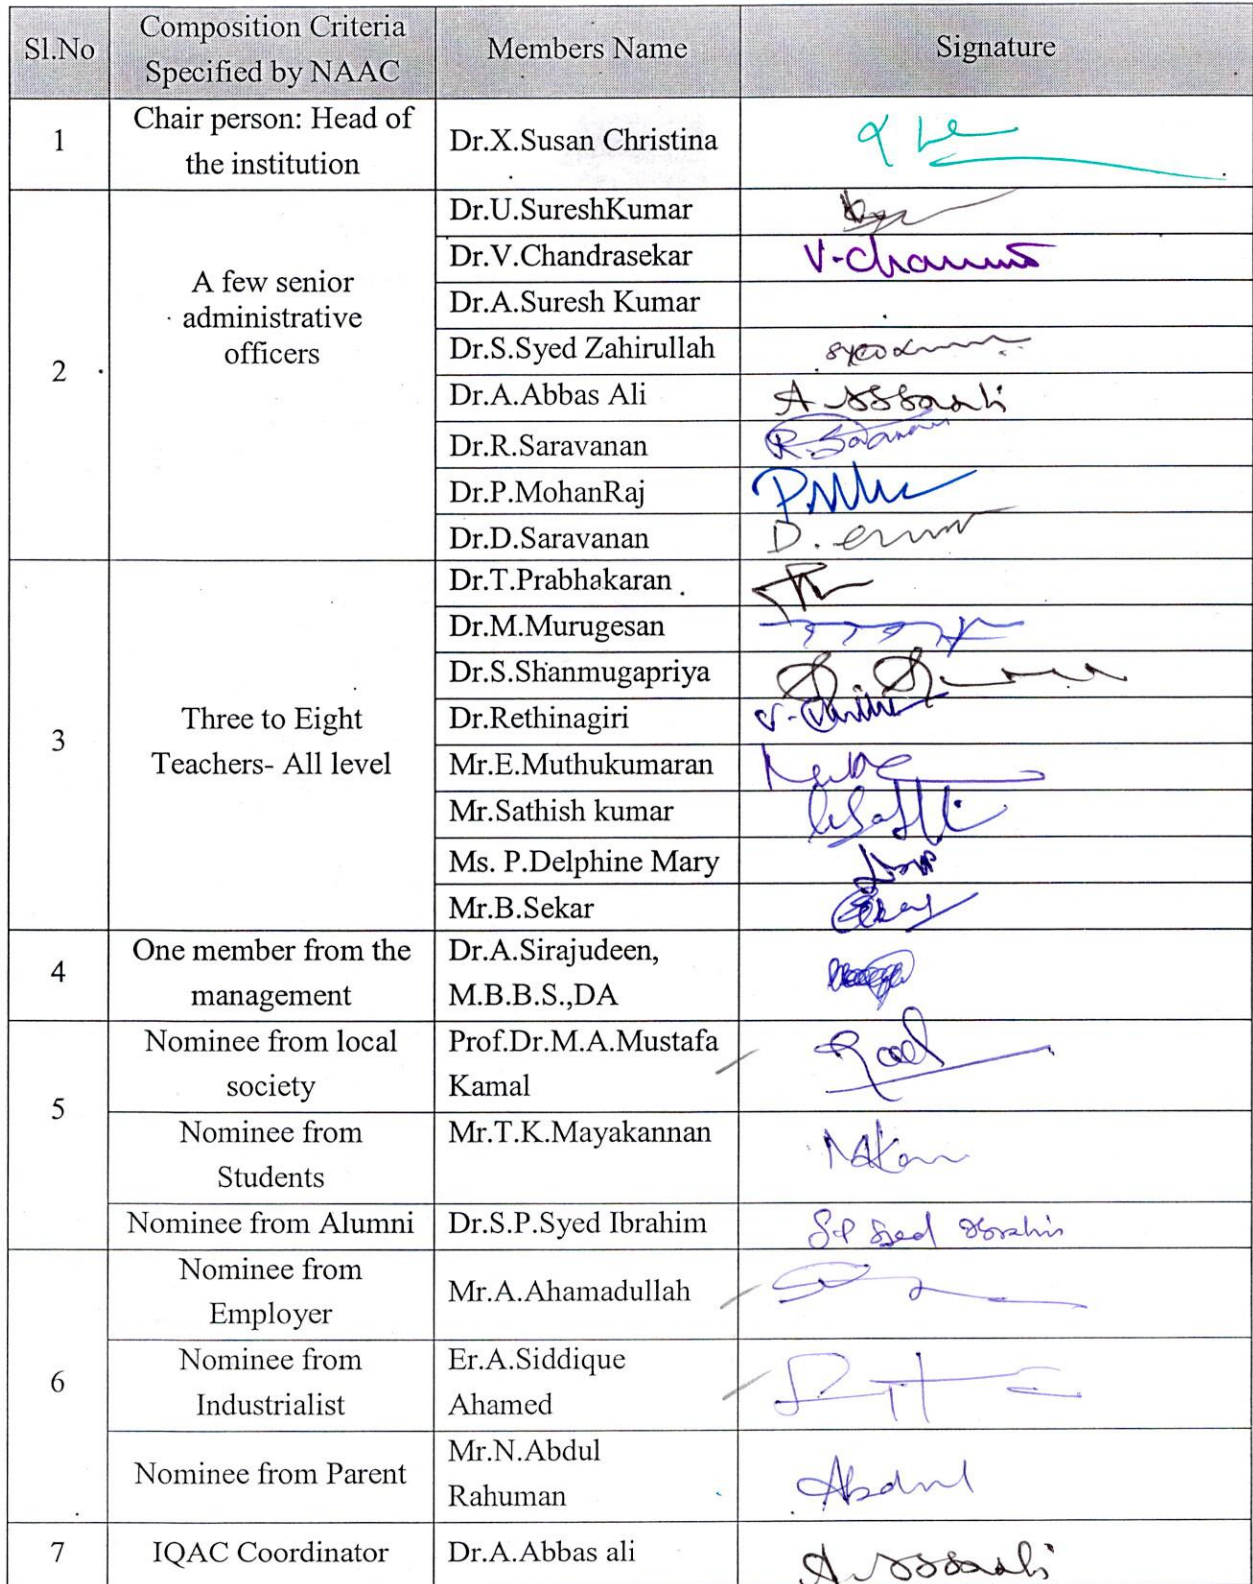 Sl.No
Composition Criteria
Specified by NAAC
Members Name
Signature
1
Chair person: Head of
the institution
Dr.X.Susan Christina
2
A few senior
administrative
officers
Dr.U.SureshKumar
Dr.V.Chandrasekar
Dr.A.Suresh Kumar
Dr.S.Syed Zahirullah
Dr.A.Abbas Ali
Dr.R.Saravanan
Dr.P.MohanRaj
Dr.D.Saravanan
3
Three to Eight
Teachers- All level
Dr.T.Prabhakaran
Dr.M.Murugesan
Dr.S.Shanmugapriya
Dr.Rethinagiri
Mr.E.Muthukumaran
Mr.Sathish kumar
Ms. P.Delphine Mary
Mr.B.Sekar
4
One member from the
management
Dr.A.Sirajudeen,
M.B.B.S.,DA
5
Nominee from local
society
Prof.Dr.M.A.Mustafa
Kamal
Nominee from
Students
Mr.T.K.Mayakannan
Nominee from Alumni
Dr.S.P.Syed Ibrahim
S.P Syed Ibrahim
6
Nominee from
Employer
Mr.A.Ahamadullah
Nominee from
Industrialist
Er.A.Siddique
Ahamed
Nominee from Parent
Mr.N.Abdul
Rahuman
Abdul
7
IQAC Coordinator
Dr.A.Abbas ali